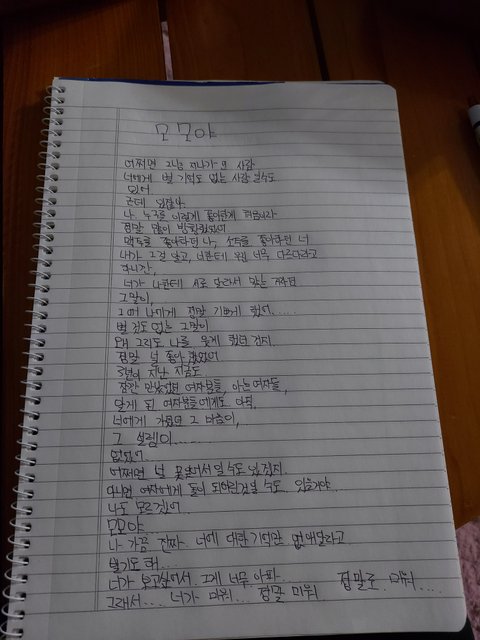 모모야
어쩌면 그냥 지나가 는 사람
너에게 별 기억도 없는 사람 일수도
있어
근데 있잖아
나 누구를 이렇게 좋아한게 처음이라
정말 많이 방황했었어
맥주를 좋아하던 나, 소주를 좋아하던 너
내가 그걸 알고, 너한테 우린 너무 다르다라고
하니깐,
너가 나한테 서로 달라서 맞는 거라던
그말이,
그 어 나에게 정말 기쁘게 했어......
별 것도 없는 그말이
왜 그리도 나를 웃게 했던 건지.
정말 널 좋아 했었어
5년이 지난 지금도
잠깐 만났었던 여자분들, 아는여자들,
알게 된 여자분들에게도 아직.
너에게 가졌던 그 마음이,
그 설렘이......
없었어.
어쩌면 널 못잊어서 일 수도 있겠지.
아니면 여자에게 돌이 되어버린걸 수도 있을거야.
나도 모르겠어..
모모야
나 가끔 진짜 너에 대한 기억만 없애달라고
빌기도 해....
너가 보고싶어서 그게 너무 아파...
그래서.... 너가 미워... 정말 미워 정말로 미워....